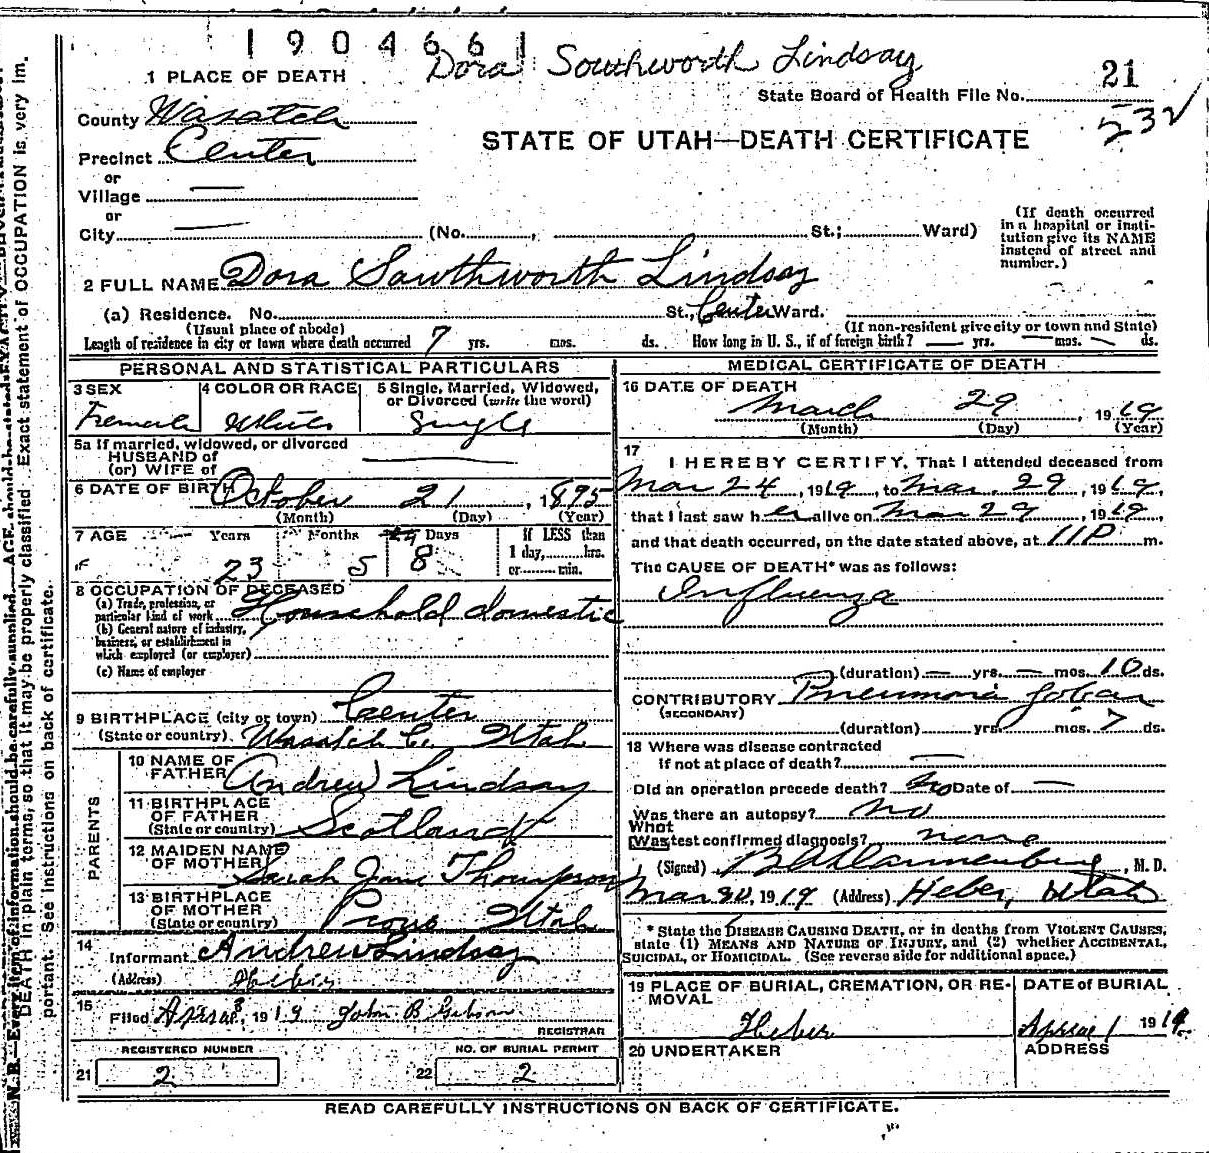 1904661
Dora Southworth Lindsay
21
1 PLACE OF DEATH
State Board of Health File No.
532
County Wasatch
STATE OF UTAH—DEATH CERTIFICATE
Precinct Center
or
Village —
or
City — (No. , St.; Ward)
(If death occurred in a hospital or insti-
tution give its NAME
instead of street and
number.)
2 FULL NAME Dora Sowthworth Lindsay
(a) Residence. No. St., Center Ward.
(Usual place of abode)
(If non-resident give city or town and State)
Length of residence in city or town where death occurred 7 yrs. mos. ds. How long in U. S., if of foreign birth? — yrs. — mos. — ds.
PERSONAL AND STATISTICAL PARTICULARS
3 SEX
Female
4 COLOR OR RACE
White
5 Single, Married, Widowed,
or Divorced (write the word)
Single
5a If married, widowed, or divorced
HUSBAND of
(or) WIFE of —
6 DATE OF BIRTH October 21, 1895
(Month) (Day) (Year)
7 AGE Years Months Days
23 5 8
If LESS than
1 day, hrs.
or min.
8 OCCUPATION OF DECEASED
(a) Trade, profession, or
particular kind of work Household domestic
(b) General nature of industry,
business, or establishment in
which employed (or employer)
(c) Name of employer
9 BIRTHPLACE (city or town) Center
(State or country) Wasatch C. Utah
PARENTS
10 NAME OF
FATHER Andrew Lindsay
11 BIRTHPLACE
OF FATHER
(State or country) Scotland
12 MAIDEN NAME
OF MOTHER Sarah Jane Thompson
13 BIRTHPLACE
OF MOTHER
(State or country) Provo Utah
14
Informant Andrew Lindsay
(Address) Heber
15
Filed April 8, 1919 John B Gibson
REGISTRAR
REGISTERED NUMBER
21 2
NO. OF BURIAL PERMIT
22 2
MEDICAL CERTIFICATE OF DEATH
16 DATE OF DEATH
March 29, 1919
(Month) (Day) (Year)
17
I HEREBY CERTIFY, That I attended deceased from
Mar 24, 1919, to Mar. 29, 1919,
that I last saw her alive on Mar 29, 1919,
and that death occurred, on the date stated above, at 11 P m.
The CAUSE OF DEATH* was as follows:
Influenza
(duration) — yrs. — mos. 10 ds.
CONTRIBUTORY Pneumonia Lobar
(SECONDARY)
(duration) yrs. mos. 7 ds.
18 Where was disease contracted
if not at place of death? —
Did an operation precede death? No Date of —
Was there an autopsy? no
What
(Was test confirmed diagnosis? none
(Signed) , M. D.
Mar 30, 1919 (Address) Heber, Utah
* State the DISEASE CAUSING DEATH, or in deaths from VIOLENT CAUSES,
state (1) MEANS AND NATURE OF INJURY, and (2) whether ACCIDENTAL,
SUICIDAL, or HOMICIDAL. (See reverse side for additional space.)
19 PLACE OF BURIAL, CREMATION, OR RE-
MOVAL
Heber
DATE of BURIAL
April 1 1919
20 UNDERTAKER
ADDRESS
READ CAREFULLY INSTRUCTIONS ON BACK OF CERTIFICATE.
N. B.—Every item of information should be carefully supplied. AGE should be stated EXACTLY.
DEATH in plain terms, so that it may be properly classified. Exact statement of OCCUPATION is very im-
portant. See instructions on back of certificate.